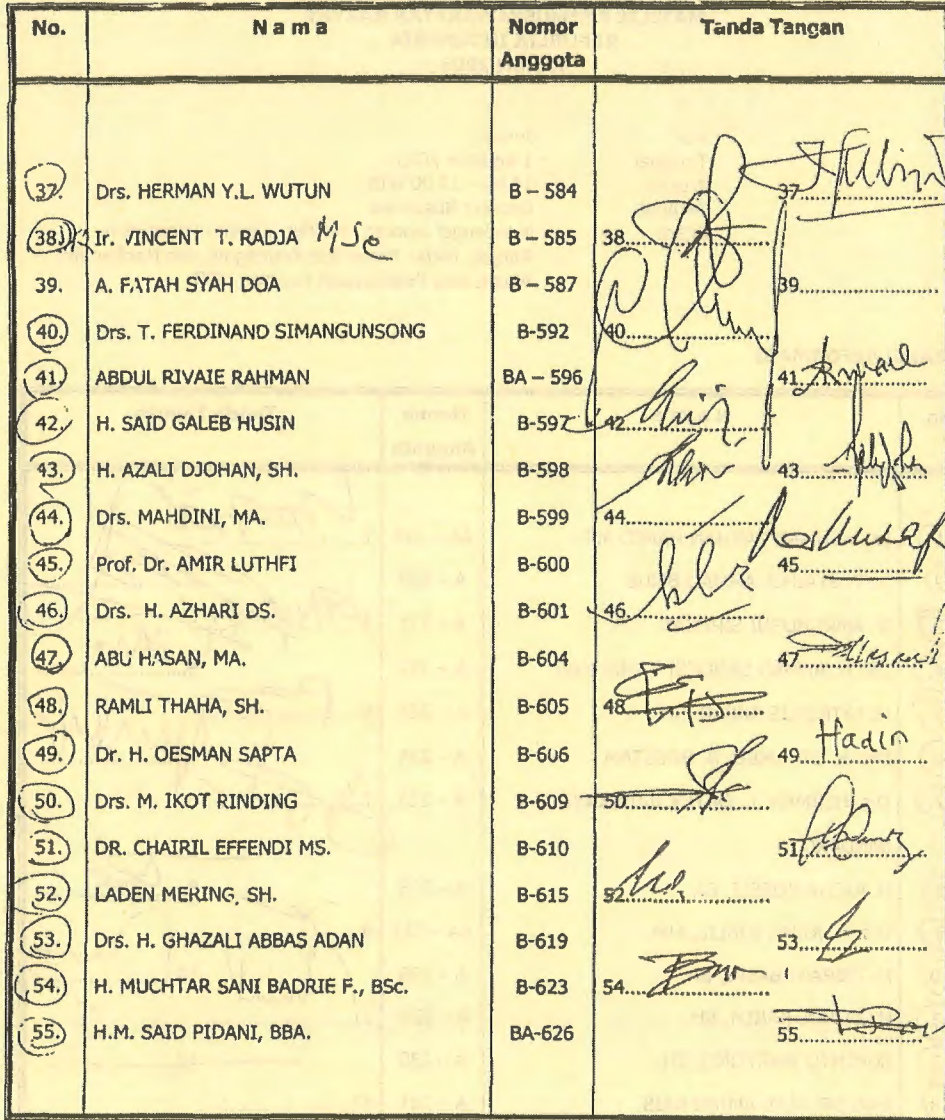 No. Nama Nomor Anggota Tanda Tangan
37. Drs. HERMAN Y.L. WUTUN B – 584 37
38. Ir. VINCENT T. RADJA MSc B – 585 38
39. A. FATAH SYAH DOA B – 587 39
40. Drs. T. FERDINAND SIMANGUNSONG B-592 40
41. ABDUL RIVAIE RAHMAN BA – 596 41
42. H. SAID GALEB HUSIN B-597 42
43. H. AZALI DJOHAN, SH. B-598 43
44. Drs. MAHDINI, MA. B-599 44
45. Prof. Dr. AMIR LUTHFI B-600 45
46. Drs. H. AZHARI DS. B-601 46
47. ABU HASAN, MA. B-604 47
48. RAMLI THAHA, SH. B-605 48
49. Dr. H. OESMAN SAPTA B-606 49 Hadin
50. Drs. M. IKOT RINDING B-609 50
51. DR. CHAIRIL EFFENDI MS. B-610 51
52. LADEN MERING, SH. B-615 52
53. Drs. H. GHAZALI ABBAS ADAN B-619 53
54. H. MUCHTAR SANI BADRIE F., BSc. B-623 54
55. H.M. SAID PIDANI, BBA. BA-626 55